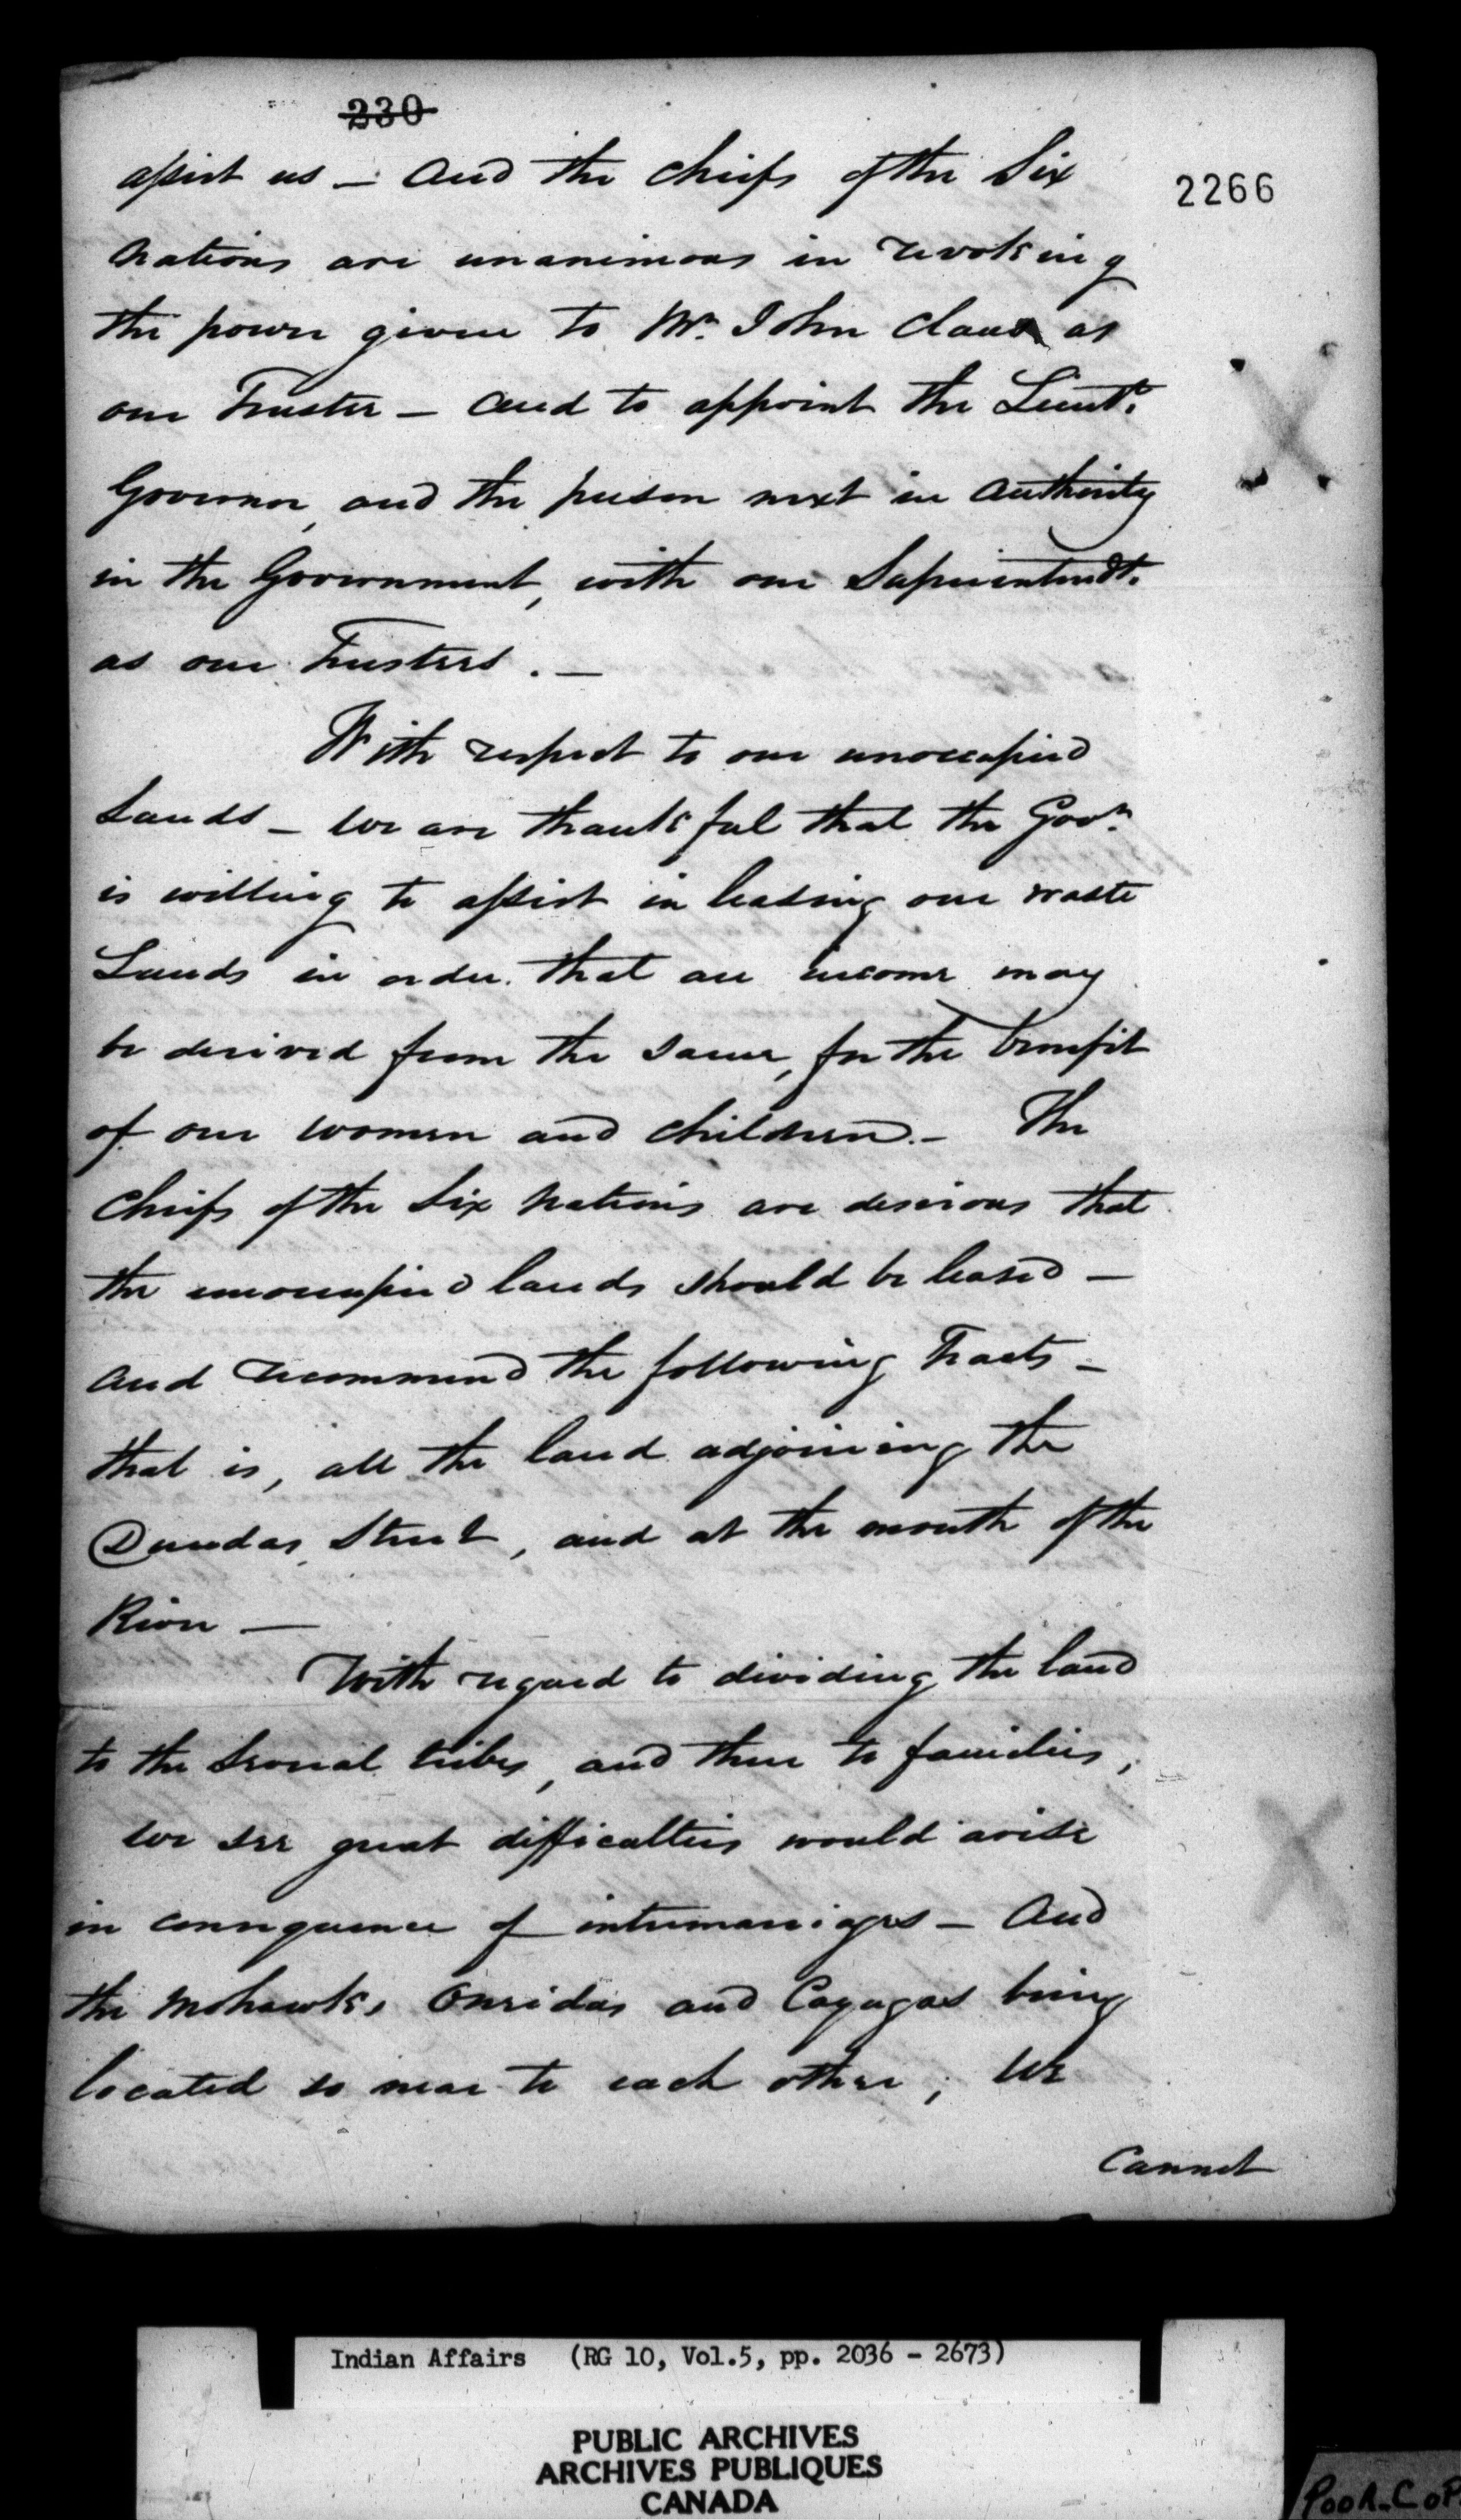 230
assist us – And the chiefs of the Six
2266
Nations are unanimous in revoking
the power given to Mr. John Claus as
our Trustee – and to appoint the Lieut.
Governor, and the person next in authority
in the Government, with our Superintendt.
as our Trustees. –
With respect to our unoccupied
Lands – we are thankful that the Govr.
is willing to assist in leasing our waste
Lands in order that an income may
be derived from the same, for the benefit
of our women and children. – The
Chiefs of the Six Nations are desirous that
the unoccupied lands should be leased –
and recommend the following Tracts –
that is, all the land adjoining the
Dundas Street, and at the mouth of the
River –
With regard to dividing the land
to the several tribes, and then to families,
we see great difficulties would arise
in consequence of intermarriages – And
the Mohawks, Oneidas and Cayugas being
located so near to each other; We
Cannot
Indian Affairs (RG 10, Vol.5, pp. 2036 - 2673)
PUBLIC ARCHIVES
ARCHIVES PUBLIQUES
CANADA
Poor Cop